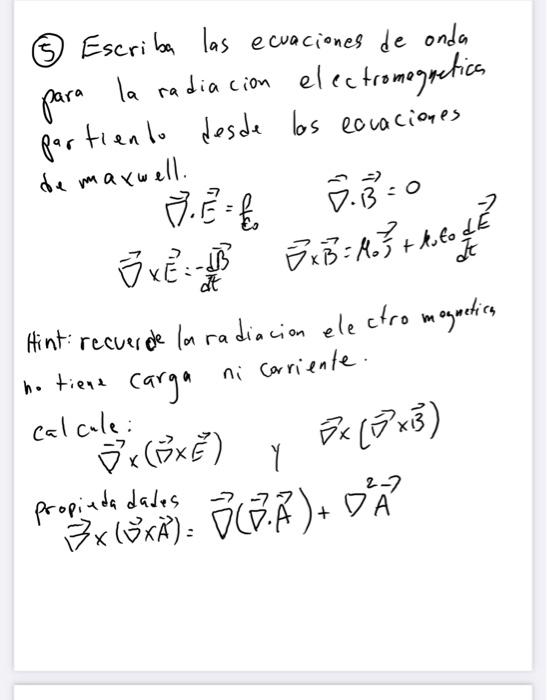 ⑤ Escriba las ecuaciones de onda
para la radiacion electromagnetica
partiendo desde las ecuaciones
de maxwell.
∇⃗·E⃗ = ρ/ε₀ ∇⃗·B⃗ = 0
∇⃗×E⃗ = -dB⃗/dt ∇⃗×B⃗ = μ₀J⃗ + μ₀ε₀ dE⃗/dt
Hint: recuerde la radiacion electro magnetica
no tiene carga ni corriente.
calcule:
∇⃗×(∇⃗×E⃗) Y ∇⃗×(∇⃗×B⃗)
propiedadades
∇⃗×(∇⃗×A⃗) = ∇⃗(∇⃗·A⃗) + ∇²A⃗